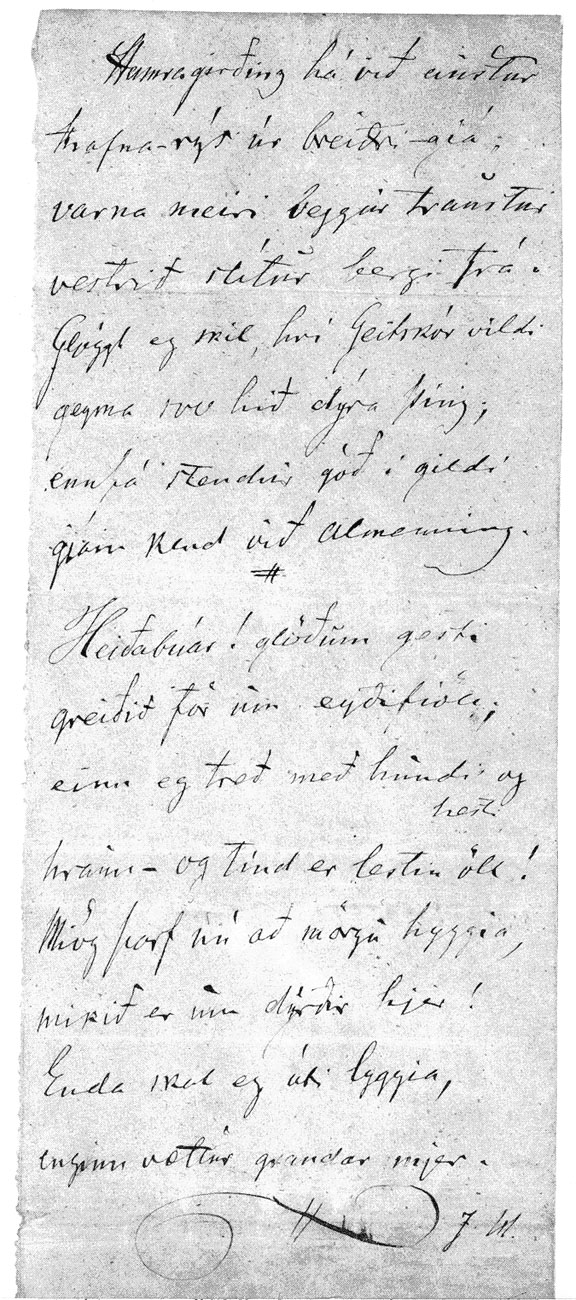 Hamragirðing há við austur
hrafna-rýs úr breiðri-giá;
varna meiri veggur traustur
vestrið slítur bergi frá.
Glöggt eg skil, hvi Geitskór vildi
geyma svo hið dýra þing;
ennþá stendur góð i gildi
gjáin kend við almenning.
Heiðabúar! glöðum gesti
greiðið för um eyðifiöll;
einn eg treð með hundi og
hesti
hraun- og tínd er lestin öll!
Miög þarf nú að mörgu hyggia,
mikið er um dýrðir hjer!
Enda skal eg úti lyggia,
enginn vættur grandar mjer.
J. H.